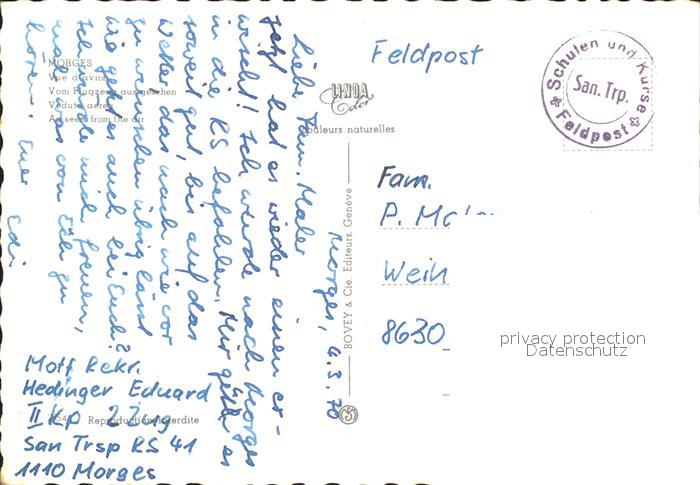 Morges, 4.3.70
Liebe Fam. Maler
Jetzt hat es wieder einen er-
wischt! Ich wurde nach Morges
in die RS befohlen. Mir geht es
soweit gut, bis auf das
Wetter das nach wie vor
zu wünschen übrig lässt
Wie geht es auch bei Euch?
Ich würde mich freuen,
mal was von Euch zu
hören. Euer Edi
MORGES
Vue d'avion
Vom Flugzeug aus gesehen
Veduta aerea
As seen from the air
LINDA
Color
Couleurs naturelles
BOVEY & Cie, Editeurs, Genève
Reproduction interdite
Motf Rekr.
Hedinger Eduard
II Kp 2 Zug
San Trsp RS 41
1110 Morges
Feldpost
Schulen und Kurse
San. Trp.
Feldpost
Fam.
P. Maler
Wein
8630
privacy protection
Datenschutz